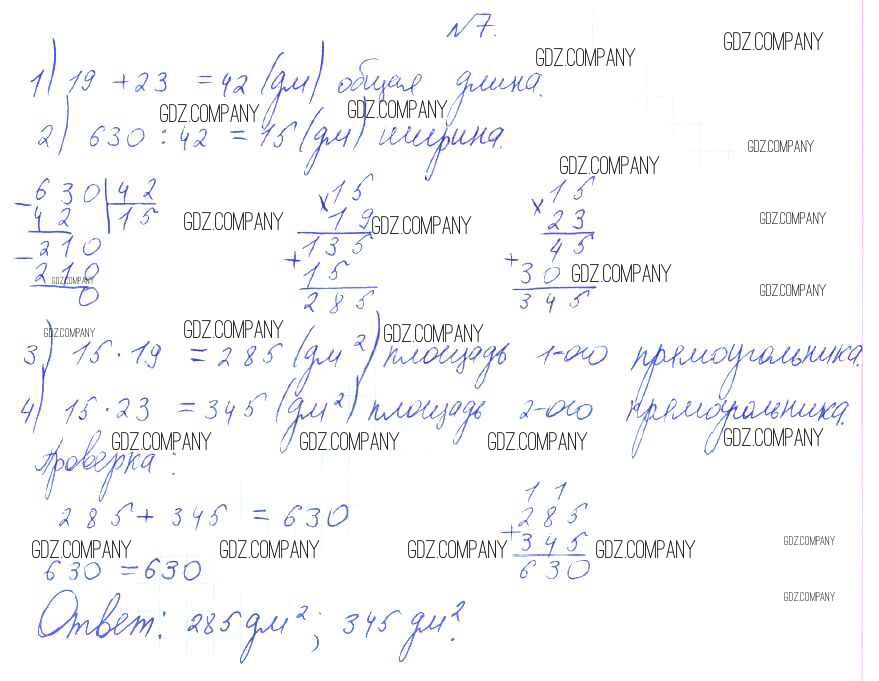 №7.
GDZ.COMPANY GDZ.COMPANY
1) 19 + 23 = 42 (дм) общая длина.
GDZ.COMPANY GDZ.COMPANY
2) 630 : 42 = 15 (дм) ширина.
GDZ.COMPANY
GDZ.COMPANY
- 630 | 42
42 | 15
- 210
210
0
× 15
19
+ 135
15
285
× 15
23
+ 45
30
345
GDZ.COMPANY GDZ.COMPANY GDZ.COMPANY
GDZ.COMPANY GDZ.COMPANY GDZ.COMPANY
GDZ.COMPANY GDZ.COMPANY GDZ.COMPANY
3) 15 · 19 = 285 (дм²) площадь 1-ого прямоугольника.
4) 15 · 23 = 345 (дм²) площадь 2-ого прямоугольника.
GDZ.COMPANY GDZ.COMPANY GDZ.COMPANY GDZ.COMPANY
Проверка:
285 + 345 = 630
1 1
+ 285
345
630
GDZ.COMPANY GDZ.COMPANY GDZ.COMPANY GDZ.COMPANY GDZ.COMPANY
630 = 630
GDZ.COMPANY
Ответ: 285 дм²; 345 дм².